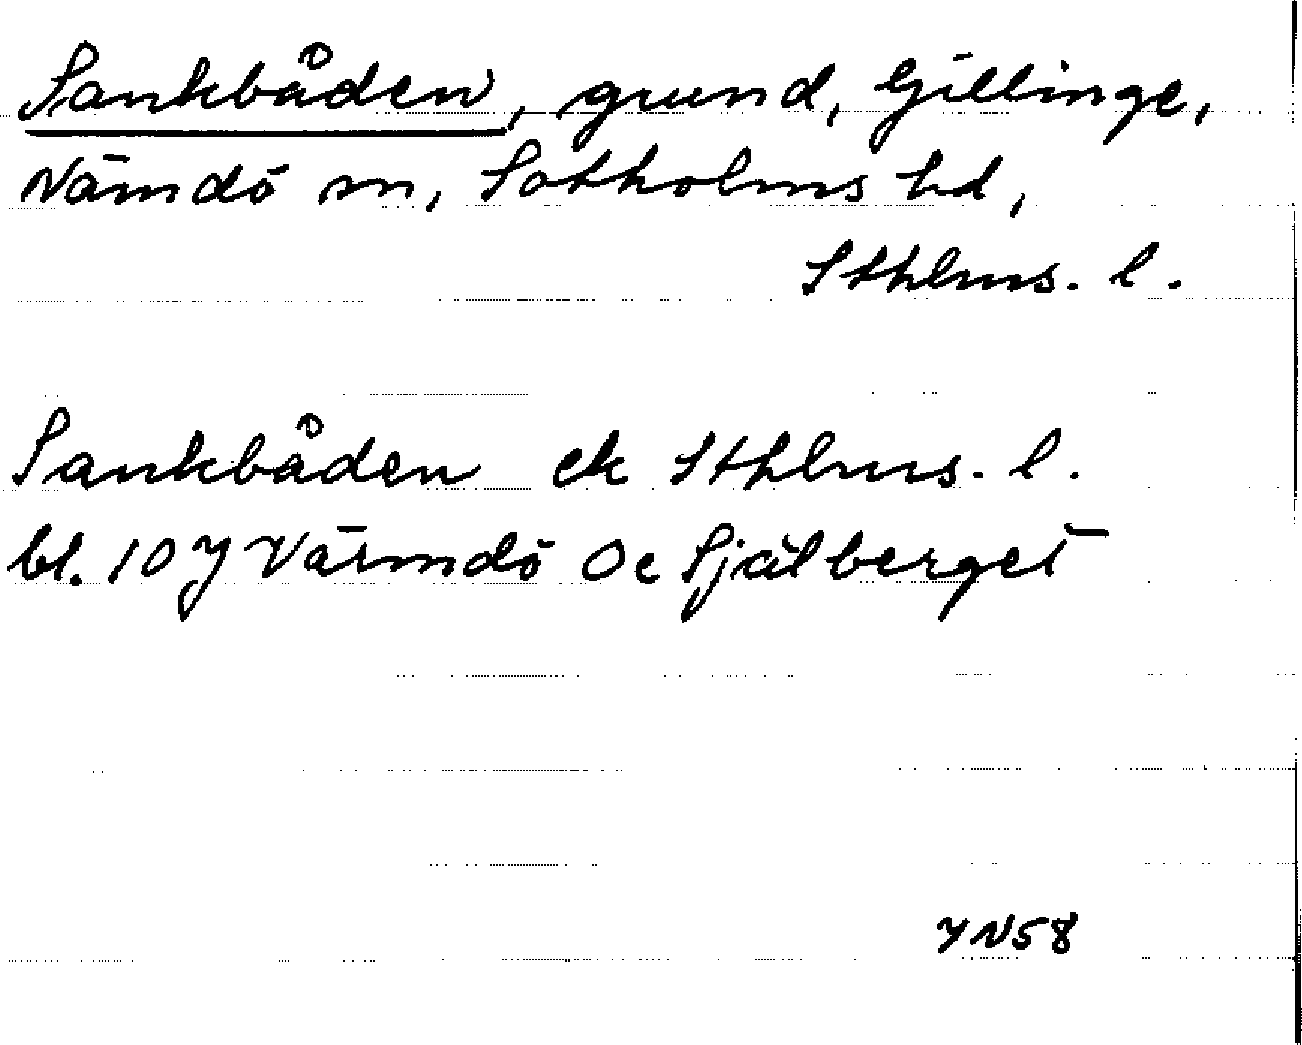 Sankbåden, grund, Gillinge,
Nämdö sn, Sotholms hd,
Sthlms. l.
Sankbåden ek Sthlms. l.
bl. 107 Värmdö Oc Själberget
YN58